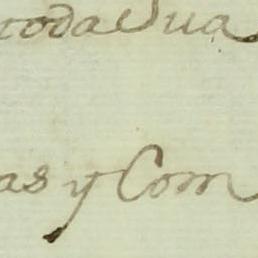 toda Sua
as y Com